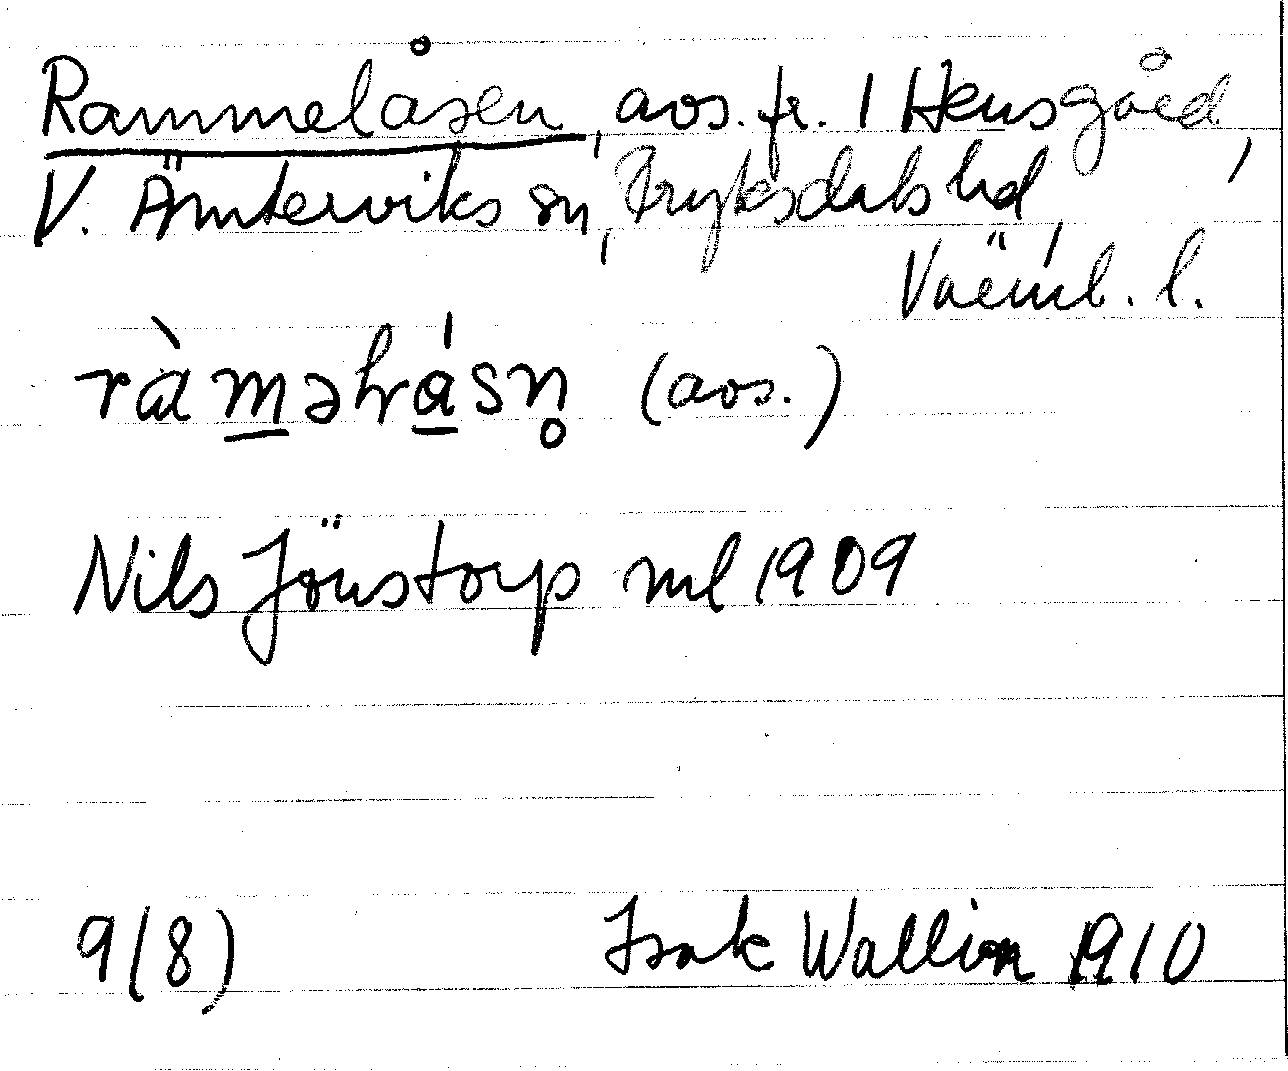 Rammelåsen, avs. fr. 1 Hensgård,
V. Ämterviks sn, Fryksdals hd,
Värml. l.
ràm̲əhrá̲sn̥ (avs.)
Nils Jönstorp ml 1909
9(8) Isak Wallin 1910